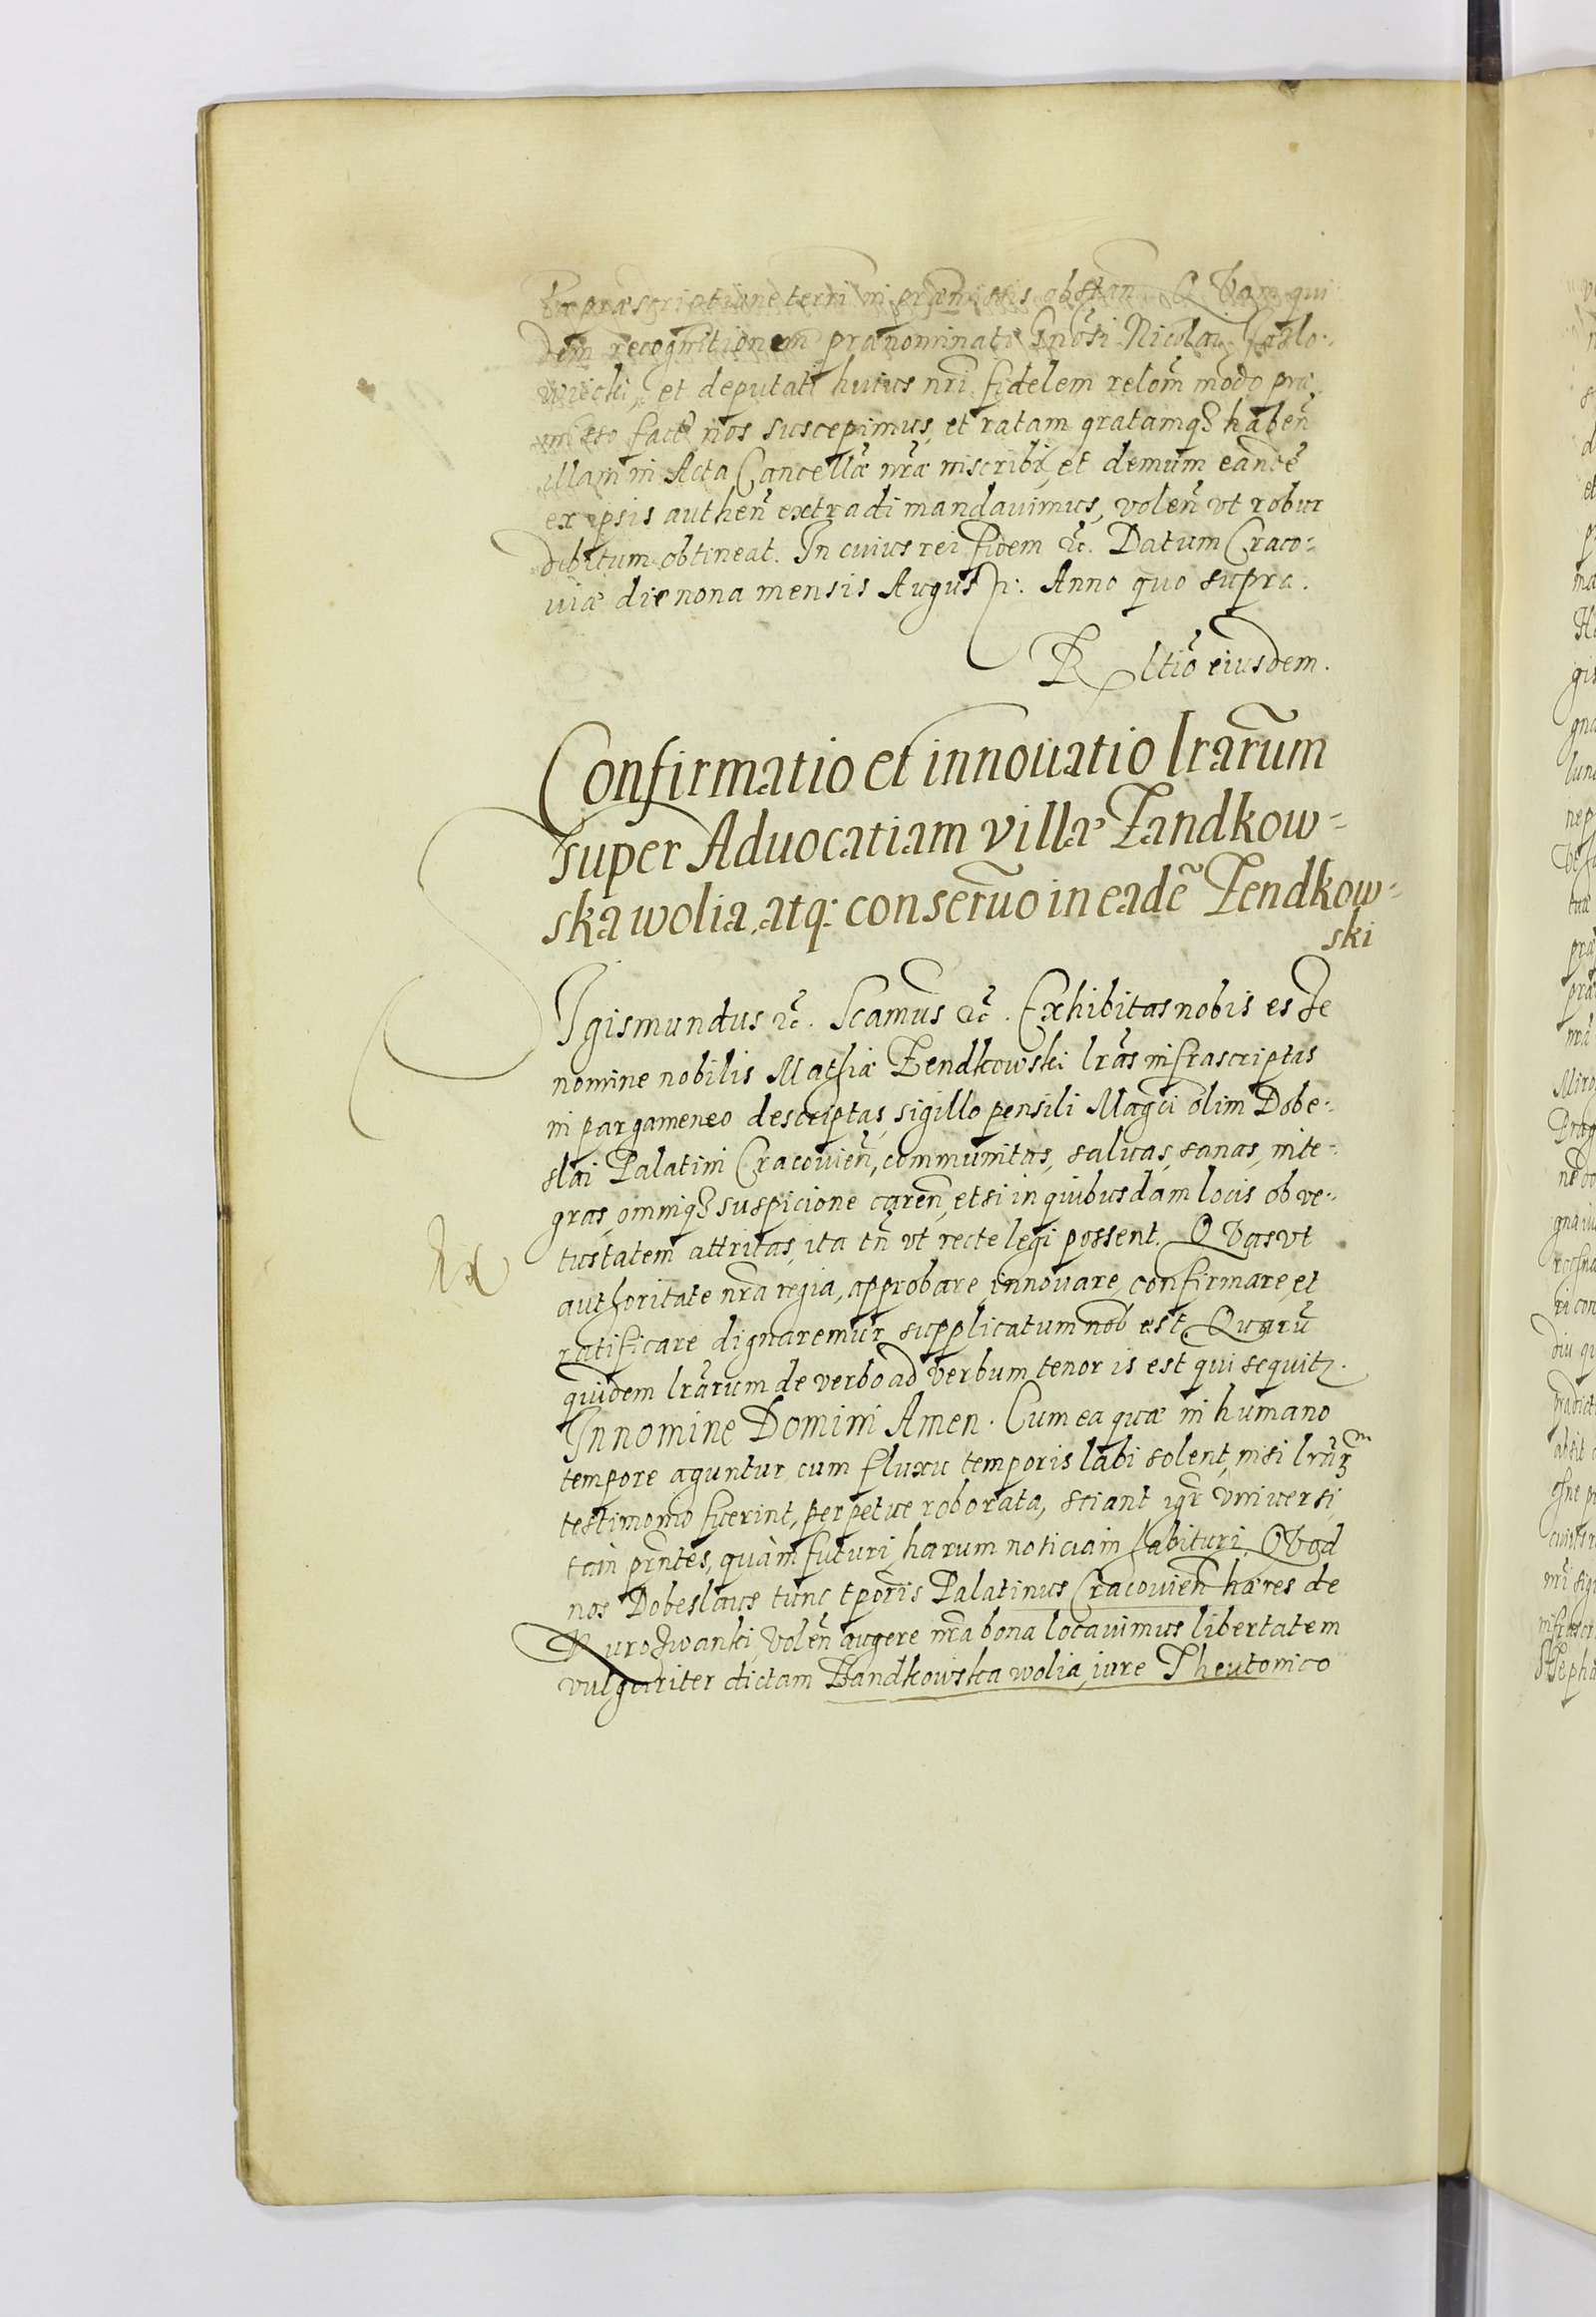 præscriptione terri in præmissis obstan̄. QVam qui
dem recognitionem prænominati Gn̄osi Nicolai Jazlo-
wiecki, et deputati huius nr̄i fidelem relōm modo præ
misso factā nos suscepimus, et ratam gratamqȝ habeñ
illam in Acta Cancellæ nr̄æ inscribi, et demum eandē
ex ipsis autheñ extradi mandauimus, voleñ vt robur
debitum obtineat. In cuius rei fidem &c̄. Datum Craco-
uiæ die nona mensis Augusti: Anno quo supra.
R̄ltiō eiusdem.
Confirmatio et innouatio lrārum
super Aduocatiam villæ Zandkow=
ska wolia, atq: conseruo in eadē Zendkow=
ski
Igismundus &c̄. Scamus &c̄. Exhibitas nobis esse
nomine nobilis Mathiæ Zendkowski lrās infrascriptas
in pargameneo descriptas, sigillo pensili Mag̃ci olim Dobe-
slai Palatini Cracouieñ, communitas, saluas, sanas, inte-
gras, omniqȝ suspicione careñ, etsi in quibusdam locis ob ve-
tustatem attritas, ita tñ vt recte legi possent. QVas vt
authoritate nr̄a regia, approbare, innouare, confirmare, et
ratificare dignaremur supplicatum nob̄ est, Quarū
quidem lrārum de verbo ad verbum tenor is est qui sequitȝ.
In nomine Domini Amen. Cum ea quæ in humano
tempore aguntur cum fluxu temporis labi solent, nisi lrārȝ
testimonio fuerint, perpetue roborata, sciant igr̄ vniuersi
tam pr̄ntes, quàm futuri, harum noticiam habituri, QVod
nos Dobeslaus tunc tp̄oris Palatinus Cracouieñ hæres de
Kurozwanki, Voleñ augere nr̄a bona locauimus libertatem
vulgariter dictam Zandkowska wolia, iure Theutonico